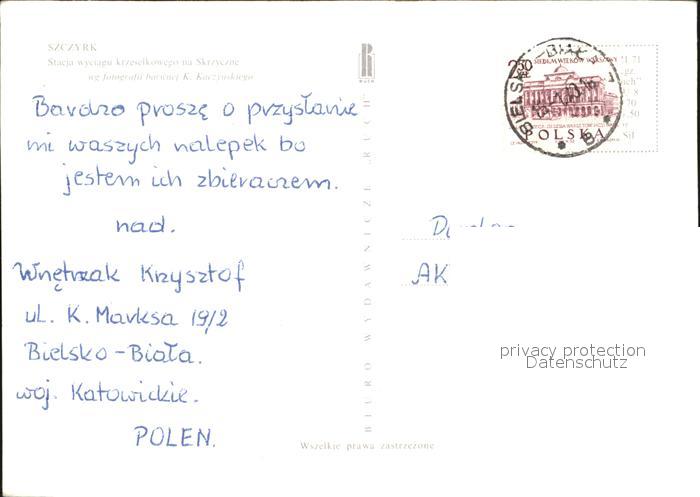 SZCZYRK
Stacja wyciągu krzesełkowego na Skrzyczne
wg fotografii barwnej K. Kaczyńskiego
Bardzo proszę o przysłanie
mi waszych nalepek bo
jestem ich zbieraczem.
nad.
Wnętrzak Krzysztof
ul. K. Marksa 19/2
Bielsko-Biała.
woj. Katowickie.
POLEN.
RUCH
BIURO WYDAWNICZE „RUCH”
SIEDEM WIEKÓW WARSZAWY
POLSKA
BIELSKO-BIAŁA 1
AK
privacy protection
Datenschutz
Wszelkie prawa zastrzeżone